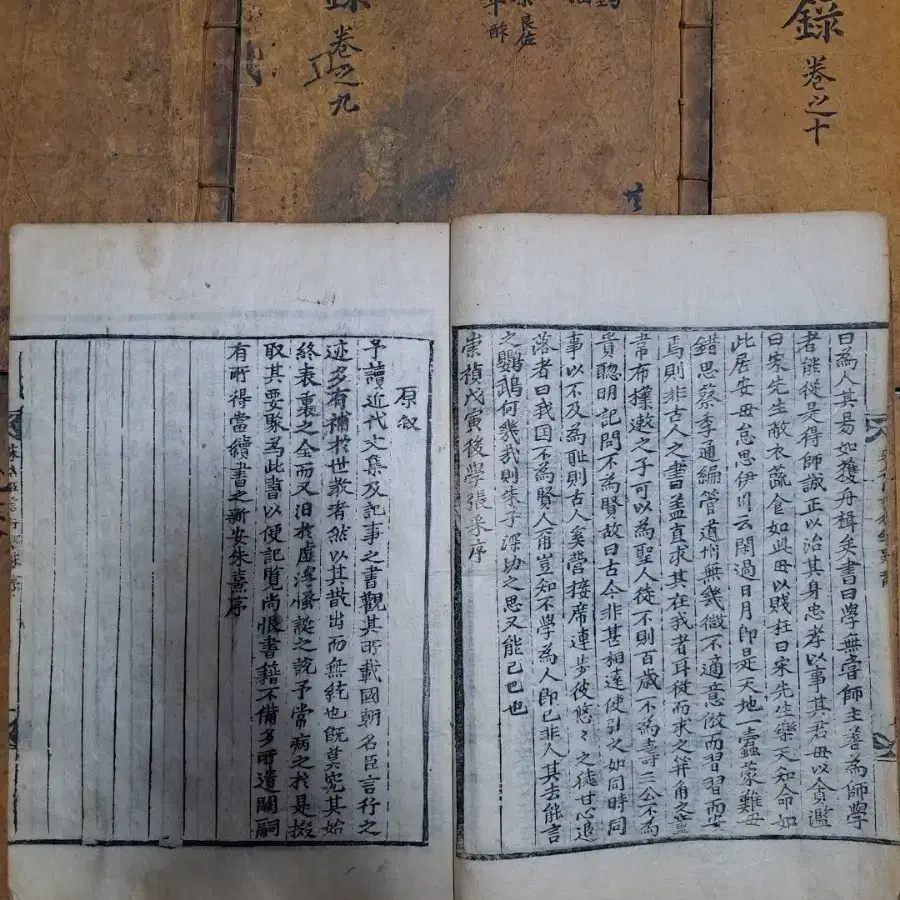 錄
卷之九
良佐
錄
卷之十
曰為人其易如獲舟楫矣書曰學無常師主善為師學
者能從是得師誠正以治其身忠孝以事其君毋以貪濫
曰宋先生敝衣蔬食如此毋以賤枉曰宋先生樂天知命如
此居安毋怠思伊川云閑過日月即是天地一蠹蒙難毋
錯思蔡季通編管道州無幾微不適意倣而習習而安
焉則非古人之書盖直求其在我者耳從而求之笄角之童
韋布擈遬之子可以為聖人徒不則百歲不為壽三公不為
貴聦明記問不為賢故曰古今非甚相遠使引之如同時同
事以不及為耻則古人奚啻接席連步彼悠々之徒甘心退
落者曰我固不為賢人甫豈知不學為人即已非人其去能言
之鸚鵡何幾哉則朱子深切之思又能已也
崇禎戊寅後學張采序
原叙
予讀近代文集及記事之書觀其所載國朝名臣言行之
迹多有補於世敎者然以其散出而無統也既莫究其始
終表裏之全而又汩於虛浮恠誕之說予常病之於是掇
取其要聚為此書以便記覽尚恨書籍不備多所遺闕嗣
有所得當續書之新安朱熹序